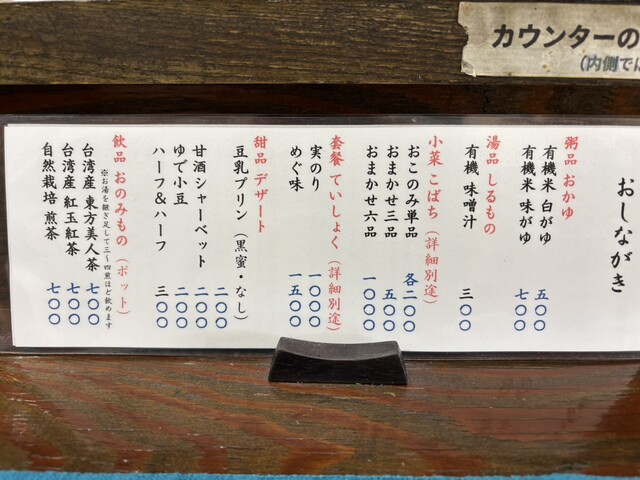 カウンターの
（内側では
おしながき
粥品 おかゆ
有機米 白がゆ 五〇〇
有機米 味がゆ 七〇〇
湯品 しるもの
有機 味噌汁 三〇〇
小菜 こばち（詳細別途）
おこのみ単品 各二〇〇
おまかせ三品 五〇〇
おまかせ六品 一〇〇〇
套餐 ていしょく（詳細別途）
実のり 一〇〇〇
めぐ味 一五〇〇
甜品 デザート
豆乳プリン（黒蜜・なし） 二〇〇
甘酒シャーベット 二〇〇
ゆで小豆 二〇〇
ハーフ＆ハーフ 三〇〇
飲品 おのみもの（ポット）
※お湯を継ぎ足して三〜四煎ほど飲めます
台湾産 東方美人茶 七〇〇
台湾産 紅玉紅茶 七〇〇
自然栽培 煎茶 七〇〇